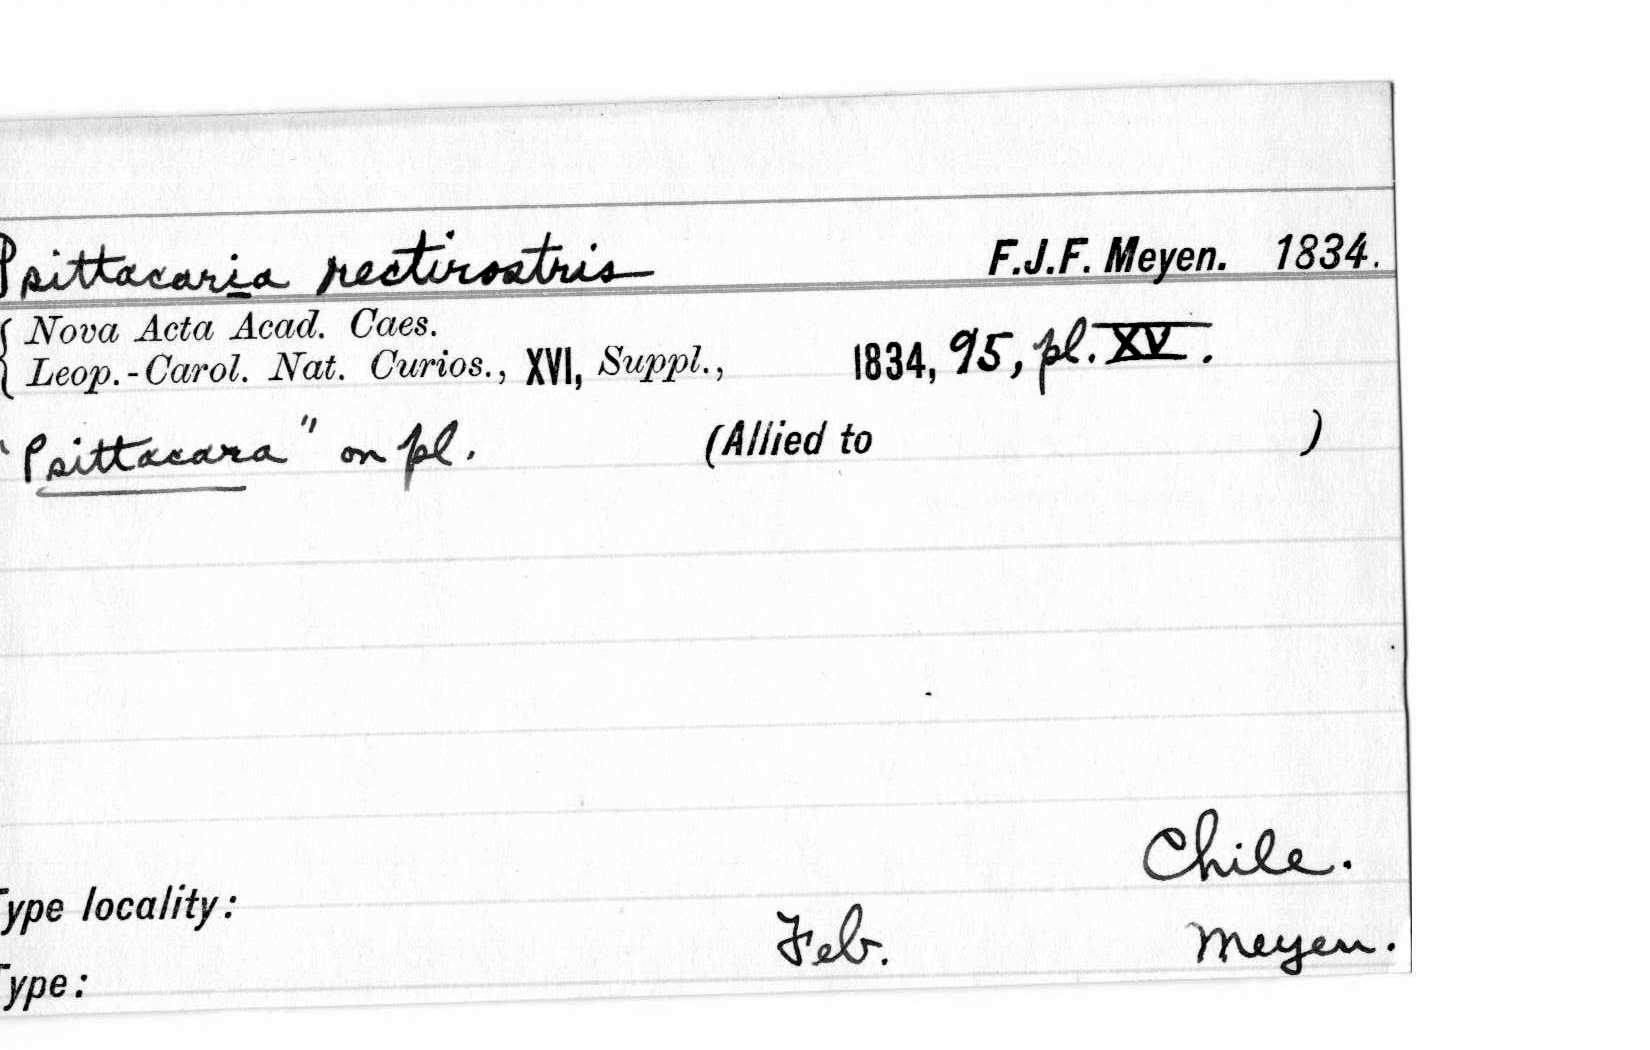 Psittacaria rectirostris F.J.F. Meyen. 1834.
Nova Acta Acad. Caes.
Leop.-Carol. Nat. Curios., XVI, Suppl., 1834, 95, pl. XV.
"Psittacara" on pl. (Allied to )
Chile.
Type locality:
Feb. Meyen.
Type: